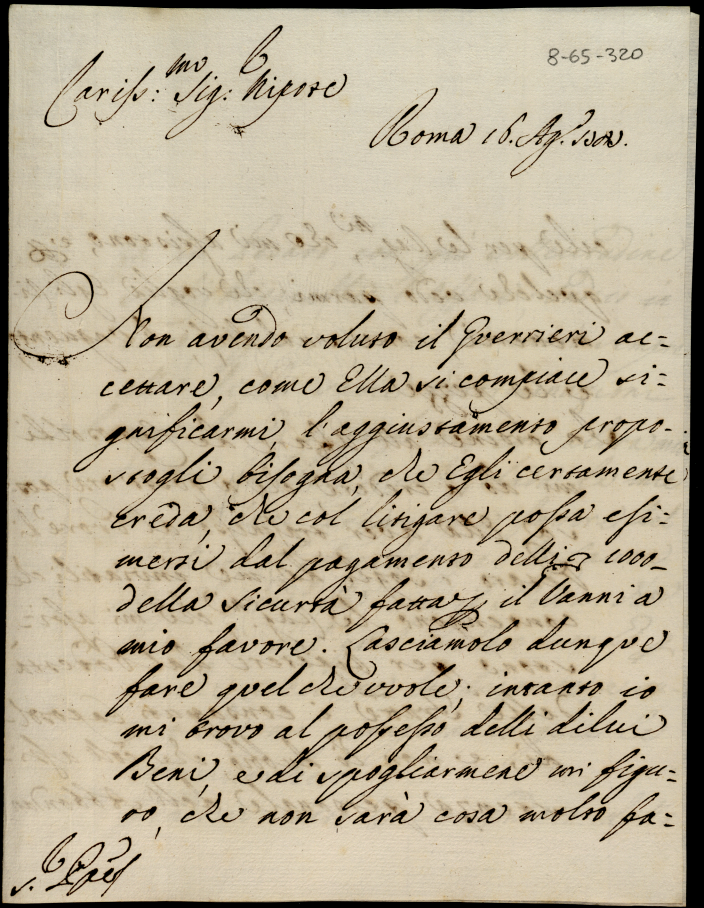 8-65-320
Cariss:mo Sig:r Nipote
Roma 16. Ag.o
Non avendo voluto il Guerrieri ac=
cettare, come Ella si compiace si=
gnificarmi, l'aggiustamento propo-
stogli bisogna, che Egli certamente
creda, che col litigare possa esi=
mersi dal pagamento delli 1000
della sicurtà fatta il Vanni a
mio favore. Lasciamolo dunque
fare quel che vuole; intanto io
mi trovo al possesso delli di lui
Beni, e di spogliarmene mi figu=
ro, che non sarà cosa molto fa=